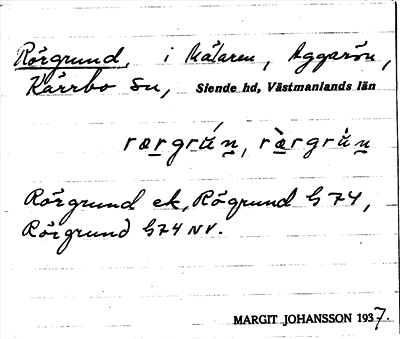 Rörgrund, i Mälaren, Aggarön,
Kärrbo sn, Siende hd, Västmanlands län
rœrgrún, rœ̀rgrǜn
Rörgrund ek, Rögrund G 74,
Rörgrund G74 NV.
MARGIT JOHANSSON 1937.